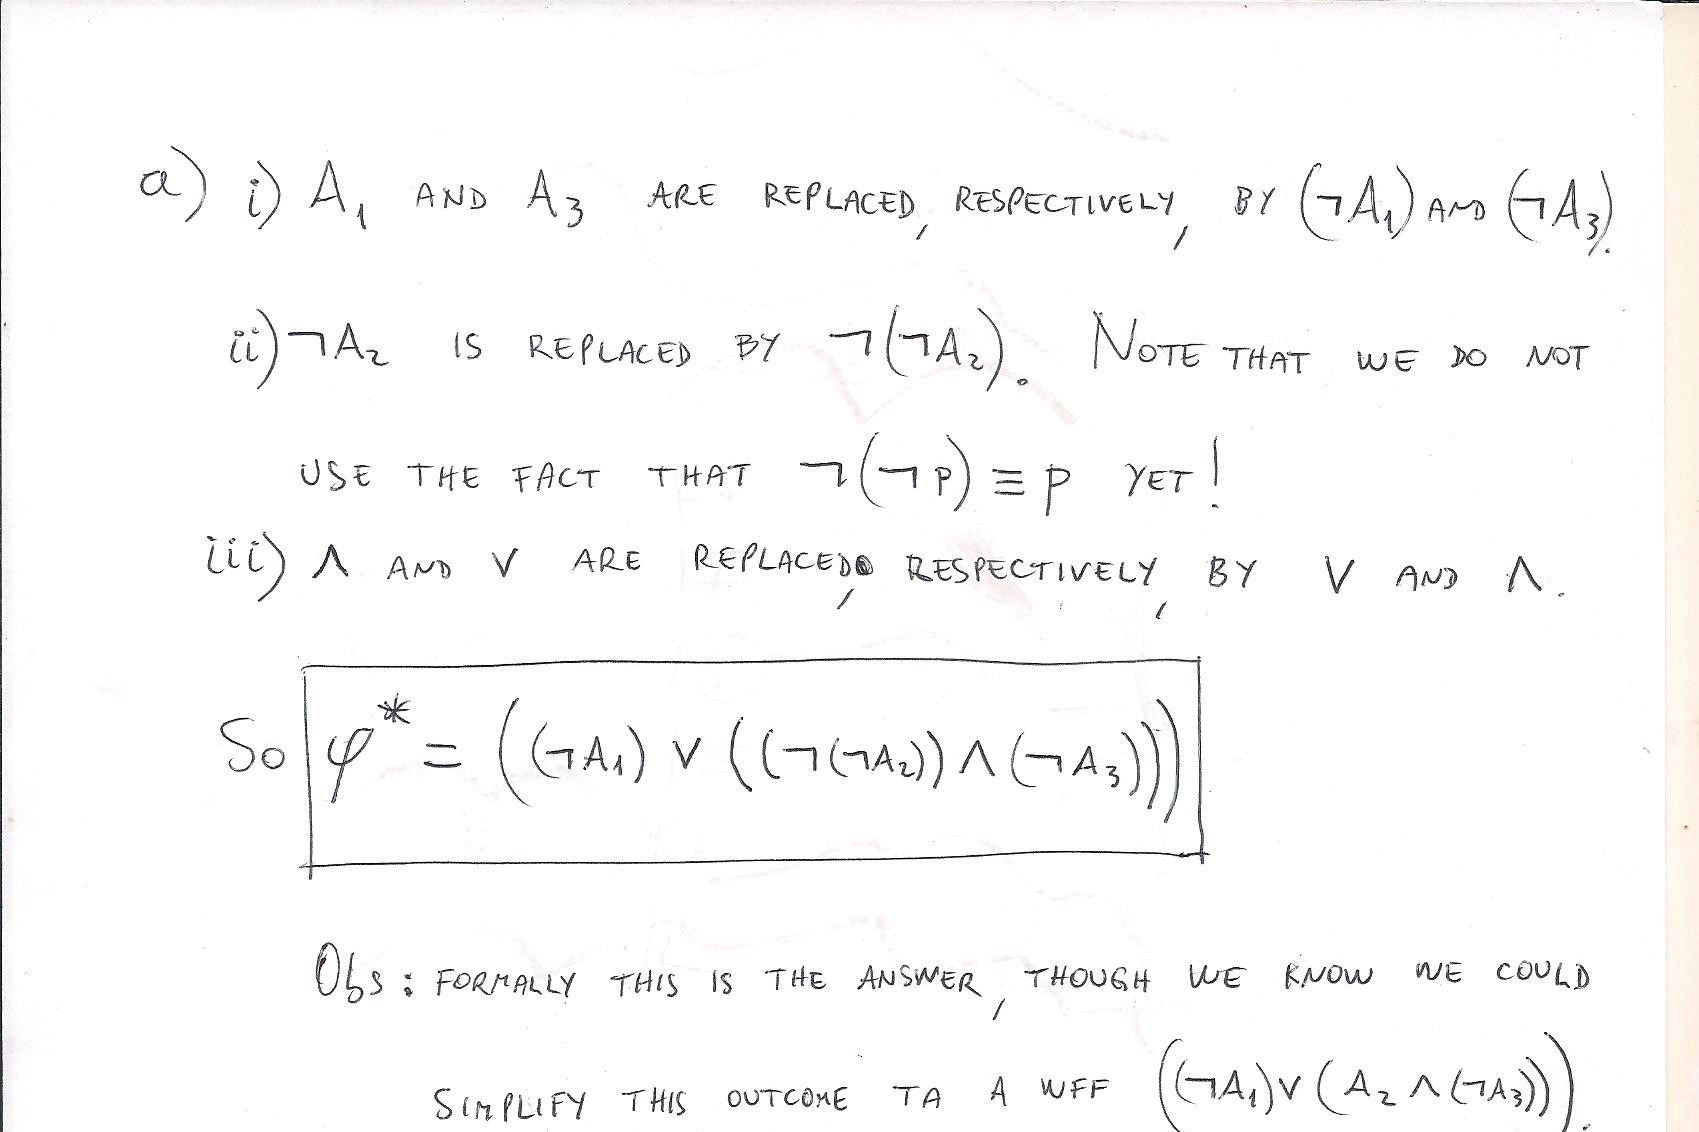 a) i) A₁ AND A₃ ARE REPLACED, RESPECTIVELY, BY (¬A₁) AND (¬A₃).
ii) ¬A₂ IS REPLACED BY ¬(¬A₂). NOTE THAT WE DO NOT
USE THE FACT THAT ¬(¬P) ≡ P YET!
iii) ∧ AND ∨ ARE REPLACED, RESPECTIVELY, BY ∨ AND ∧.
SO φ* = ((¬A₁) ∨ ((¬(¬A₂)) ∧ (¬A₃)))
Obs: FORMALLY THIS IS THE ANSWER, THOUGH WE KNOW WE COULD
SIMPLIFY THIS OUTCOME TA A WFF ((¬A₁) ∨ (A₂ ∧ (¬A₃))).